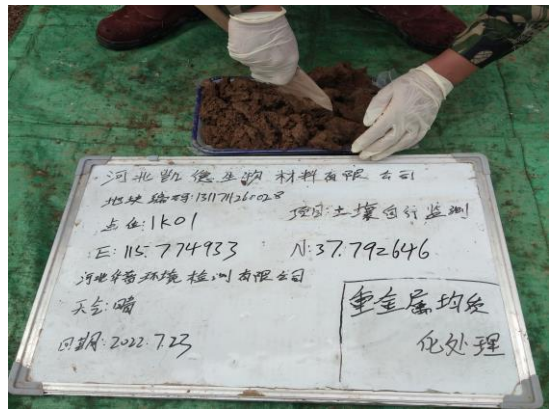 河北凯德生物材料有限公司
地块编码:1311711260028
点位:1K01 项目:土壤自行监测
E:115.774933 N:37.792646
河北华普环境检测有限公司
天气:晴
日期:2022.7.23
重金属均质
化处理